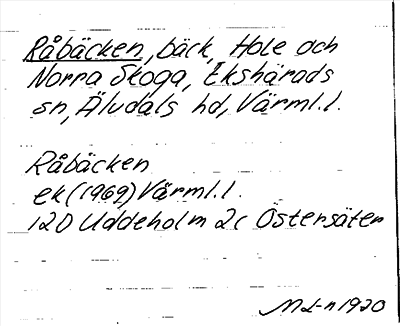 Råbäcken, bäck, Hole och
Norra Skoga, Ekshärads
sn, Äludals hd, Värml.l.
Råbäcken
ek (1969) Värml.l.
12D Uddeholm 2c Östersäter
1920